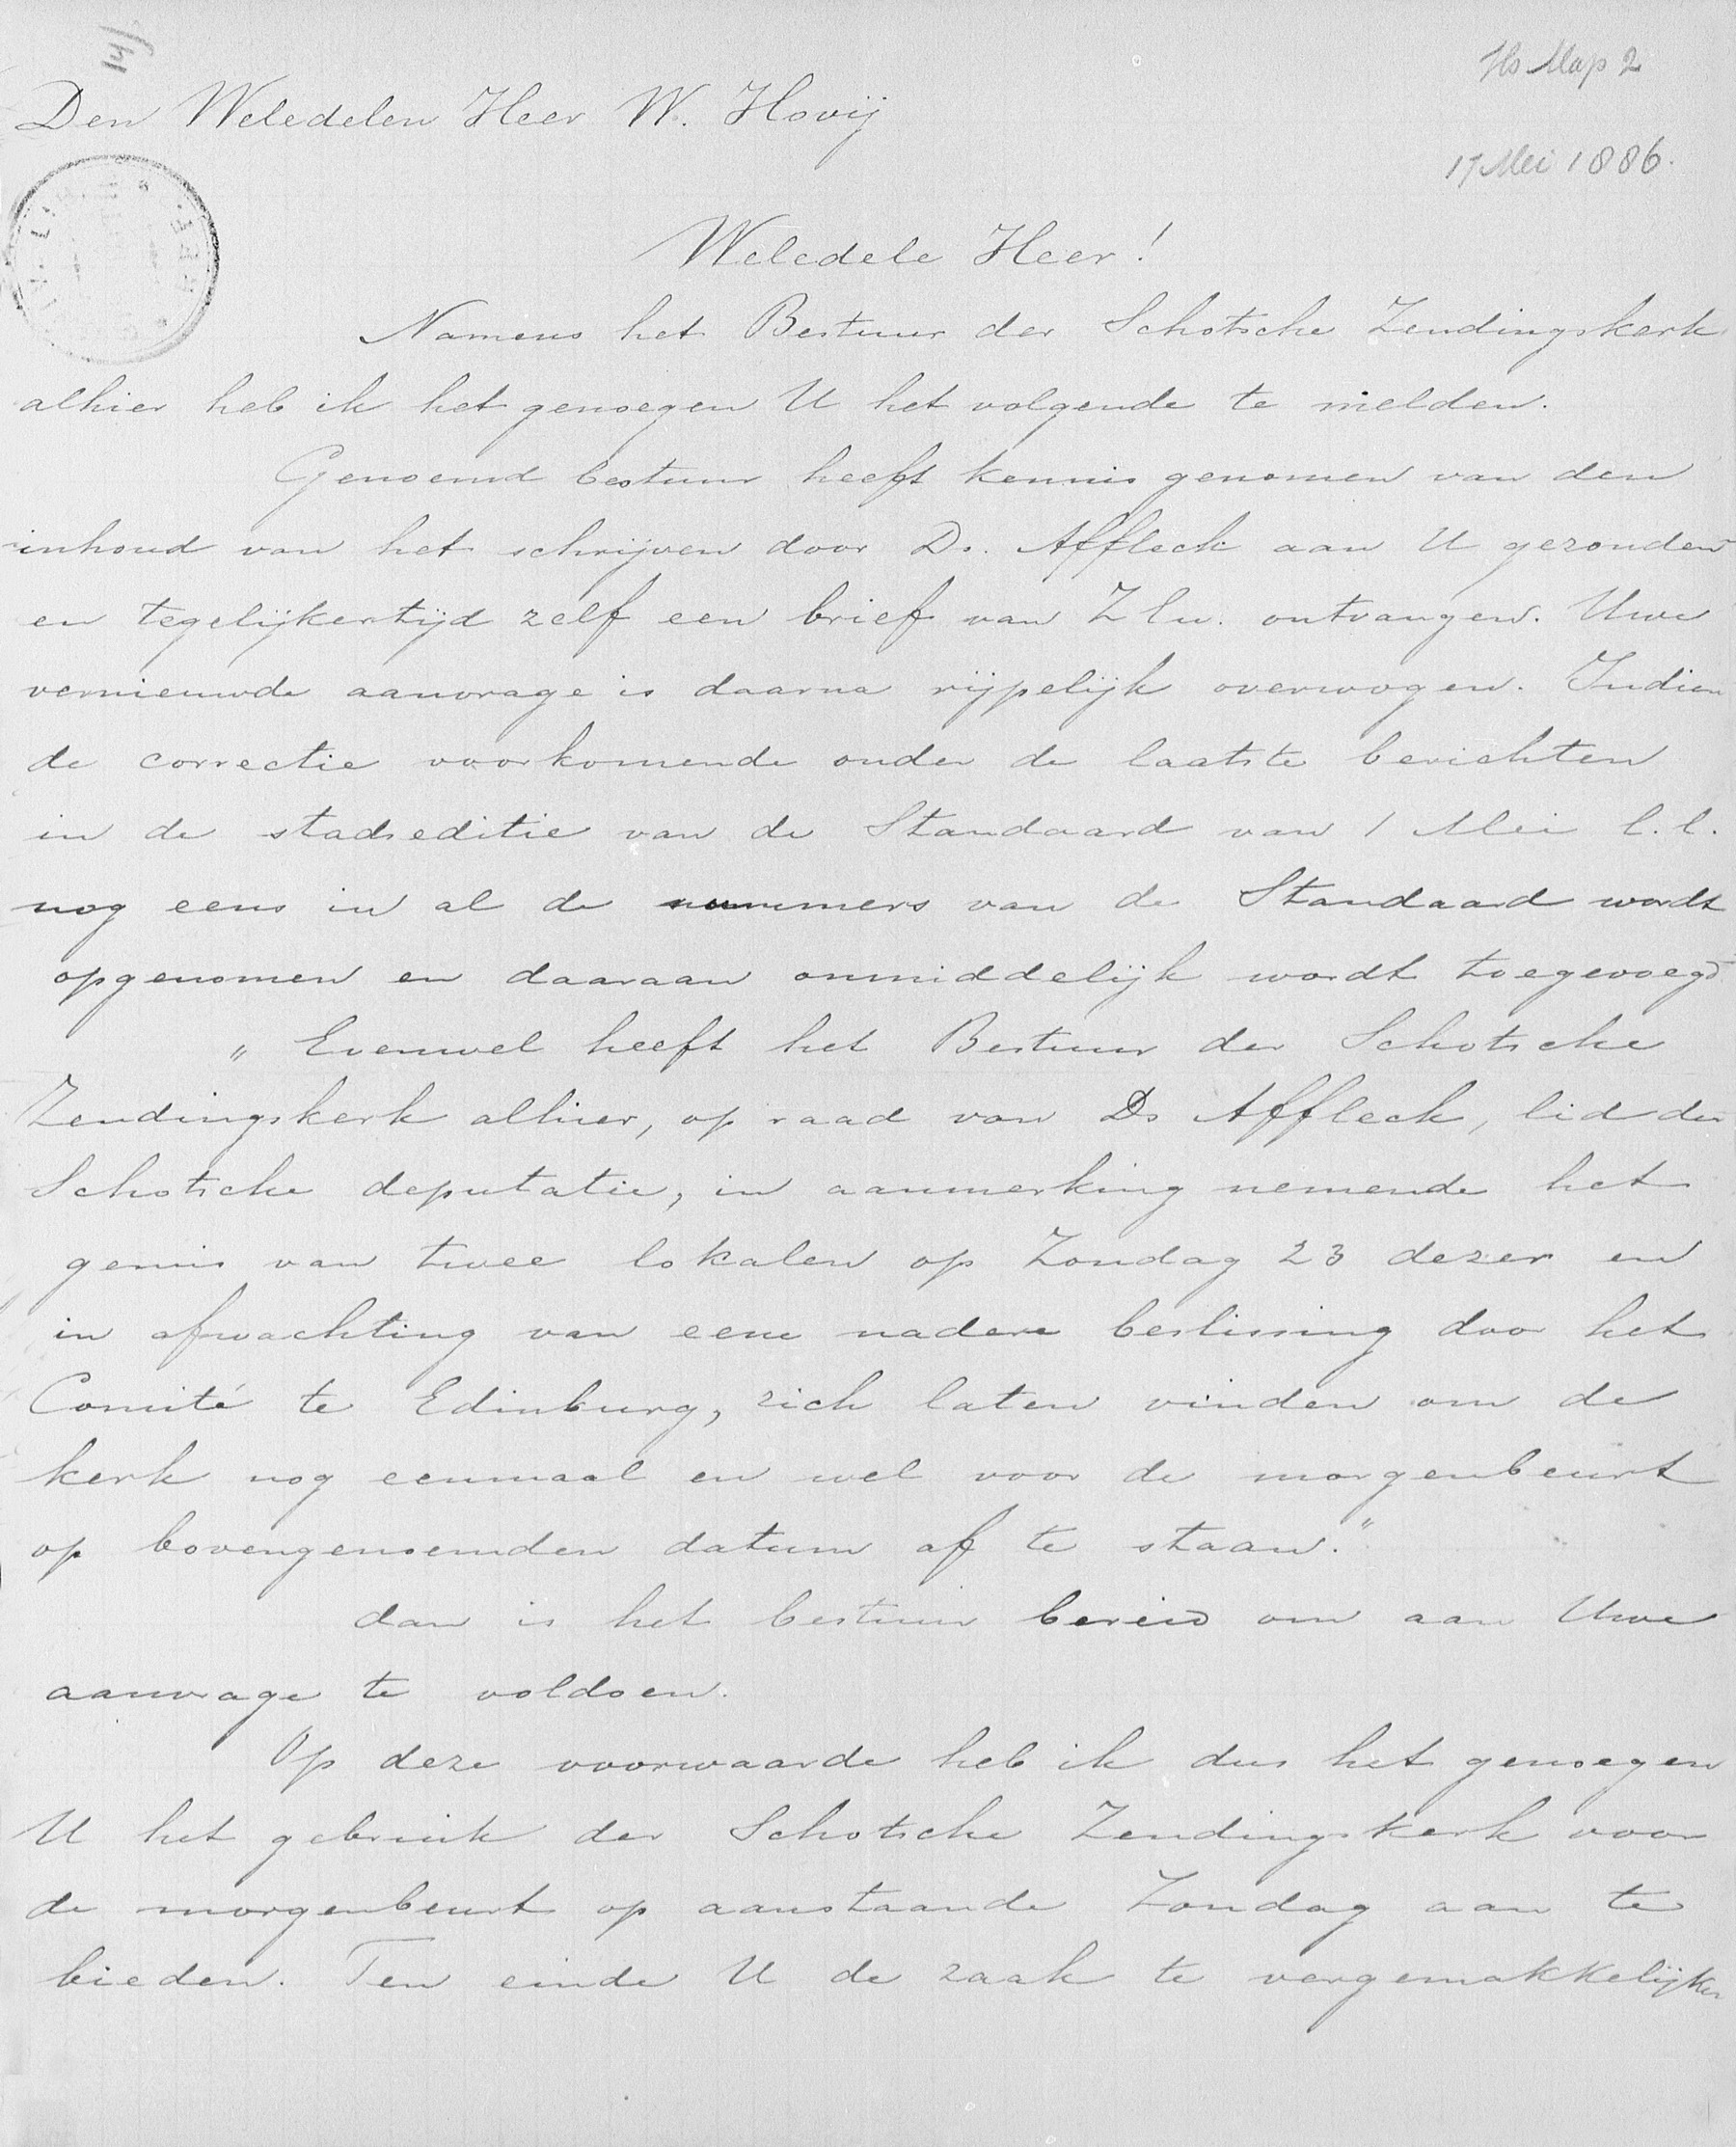 14)
Hs Map 2
Den Weledelen Heer W. Hovij
17 Mei 1886.
Weledele Heer!
Namens het Bestuur der Schotsche Zendingskerk
alhier heb ik het genoegen U het volgende te melden.
Genoemd bestuur heeft kennis genomen van den
inhoud van het schrijven door Ds. Affleck aan U gezonden
en tegelijkertijd zelf een brief van ZEw. ontvangen. Uwe
vernieuwde aanvrage is daarna rijpelijk overwogen. Indien
de correctie voorkomende onder de laatste berichten
in de stadseditie van de Standaard van 1 Mei l.l.
nog eens in al de nummers van de Standaard wordt
opgenomen en daaraan onmiddelijk wordt toegevoegd
„ Evenwel heeft het Bestuur der Schotsche
Zendingskerk alhier, op raad van Ds Affleck, lid der
Schotsche deputatie, in aanmerking nemende het
gemis van twee lokalen op Zondag 23 dezer en
in afwachting van eene nadere beslissing door het
Comité te Edinburg, zich laten vinden om de
kerk nog eenmaal en wel voor de morgenbeurt
op bovengenoemden datum af te staan."
dan is het bestuur bereid om aan Uwe
aanvrage te voldoen.
Op deze voorwaarde heb ik dus het genoegen
U het gebruik der Schotsche Zendingskerk voor
de morgenbeurt op aanstaande Zondag aan te
bieden. Ten einde U de zaak te vergemakkelijken